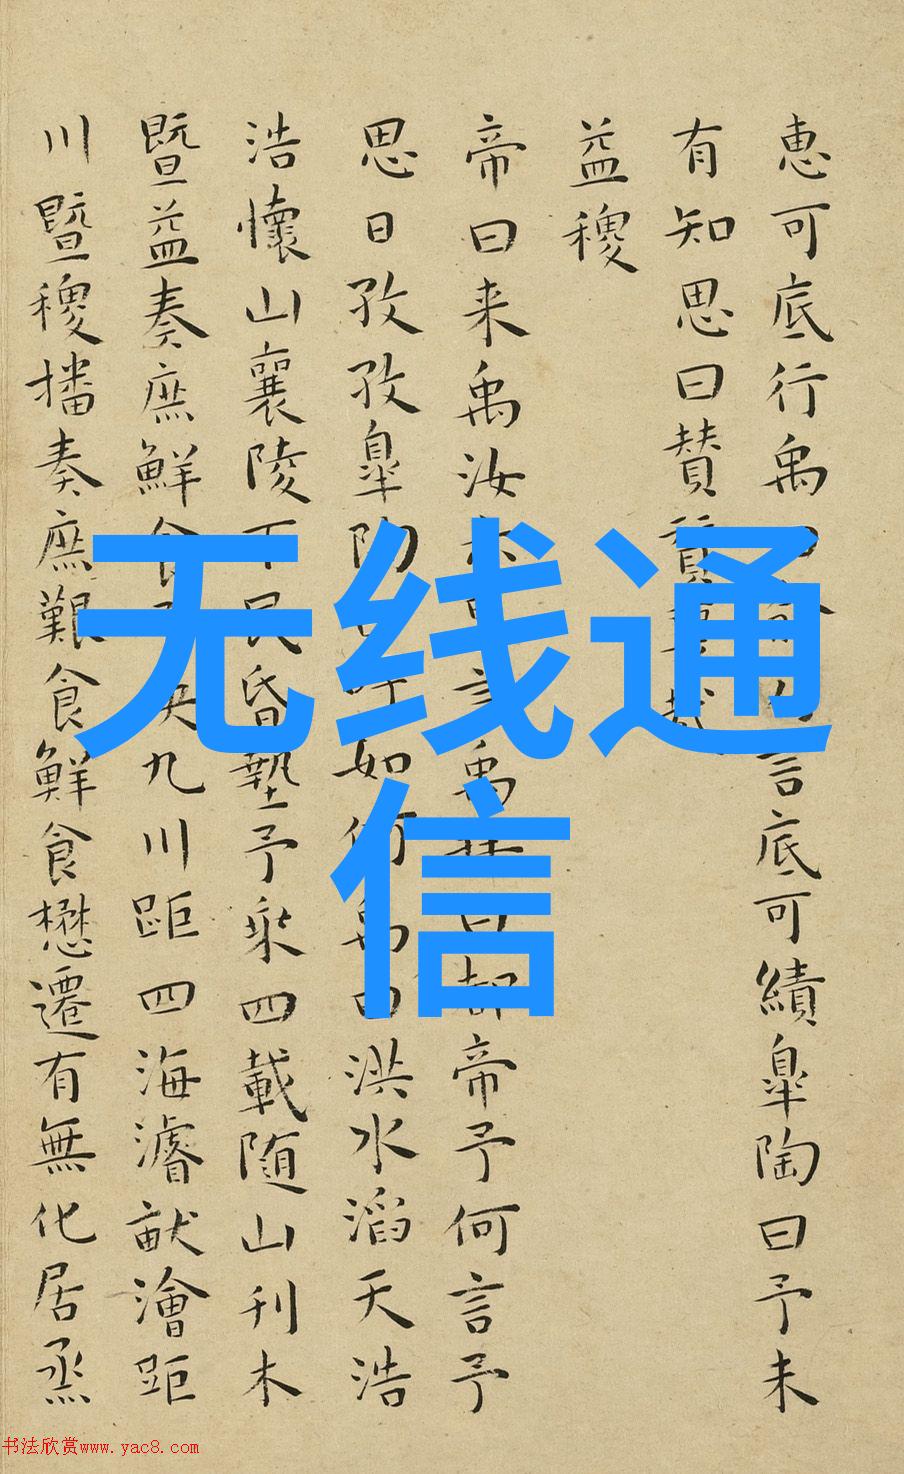 惠可底行禹言底可績臯陶曰予未
有知思曰賛
益稷
帝曰来禹汝禹曰都帝予何言予
思日孜孜臯陶如何禹曰洪水滔天浩
浩懷山襄陵下民昏墊予乘四載随山刊木
暨益奏庶鮮食決九川距四海濬畎澮距
川暨稷播奏庶艱食鮮食懋遷有無化居烝
无线通
信
书法欣赏www.yac8.com